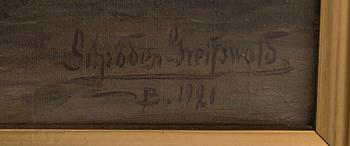 Schröder-Greifswald
B. 1921